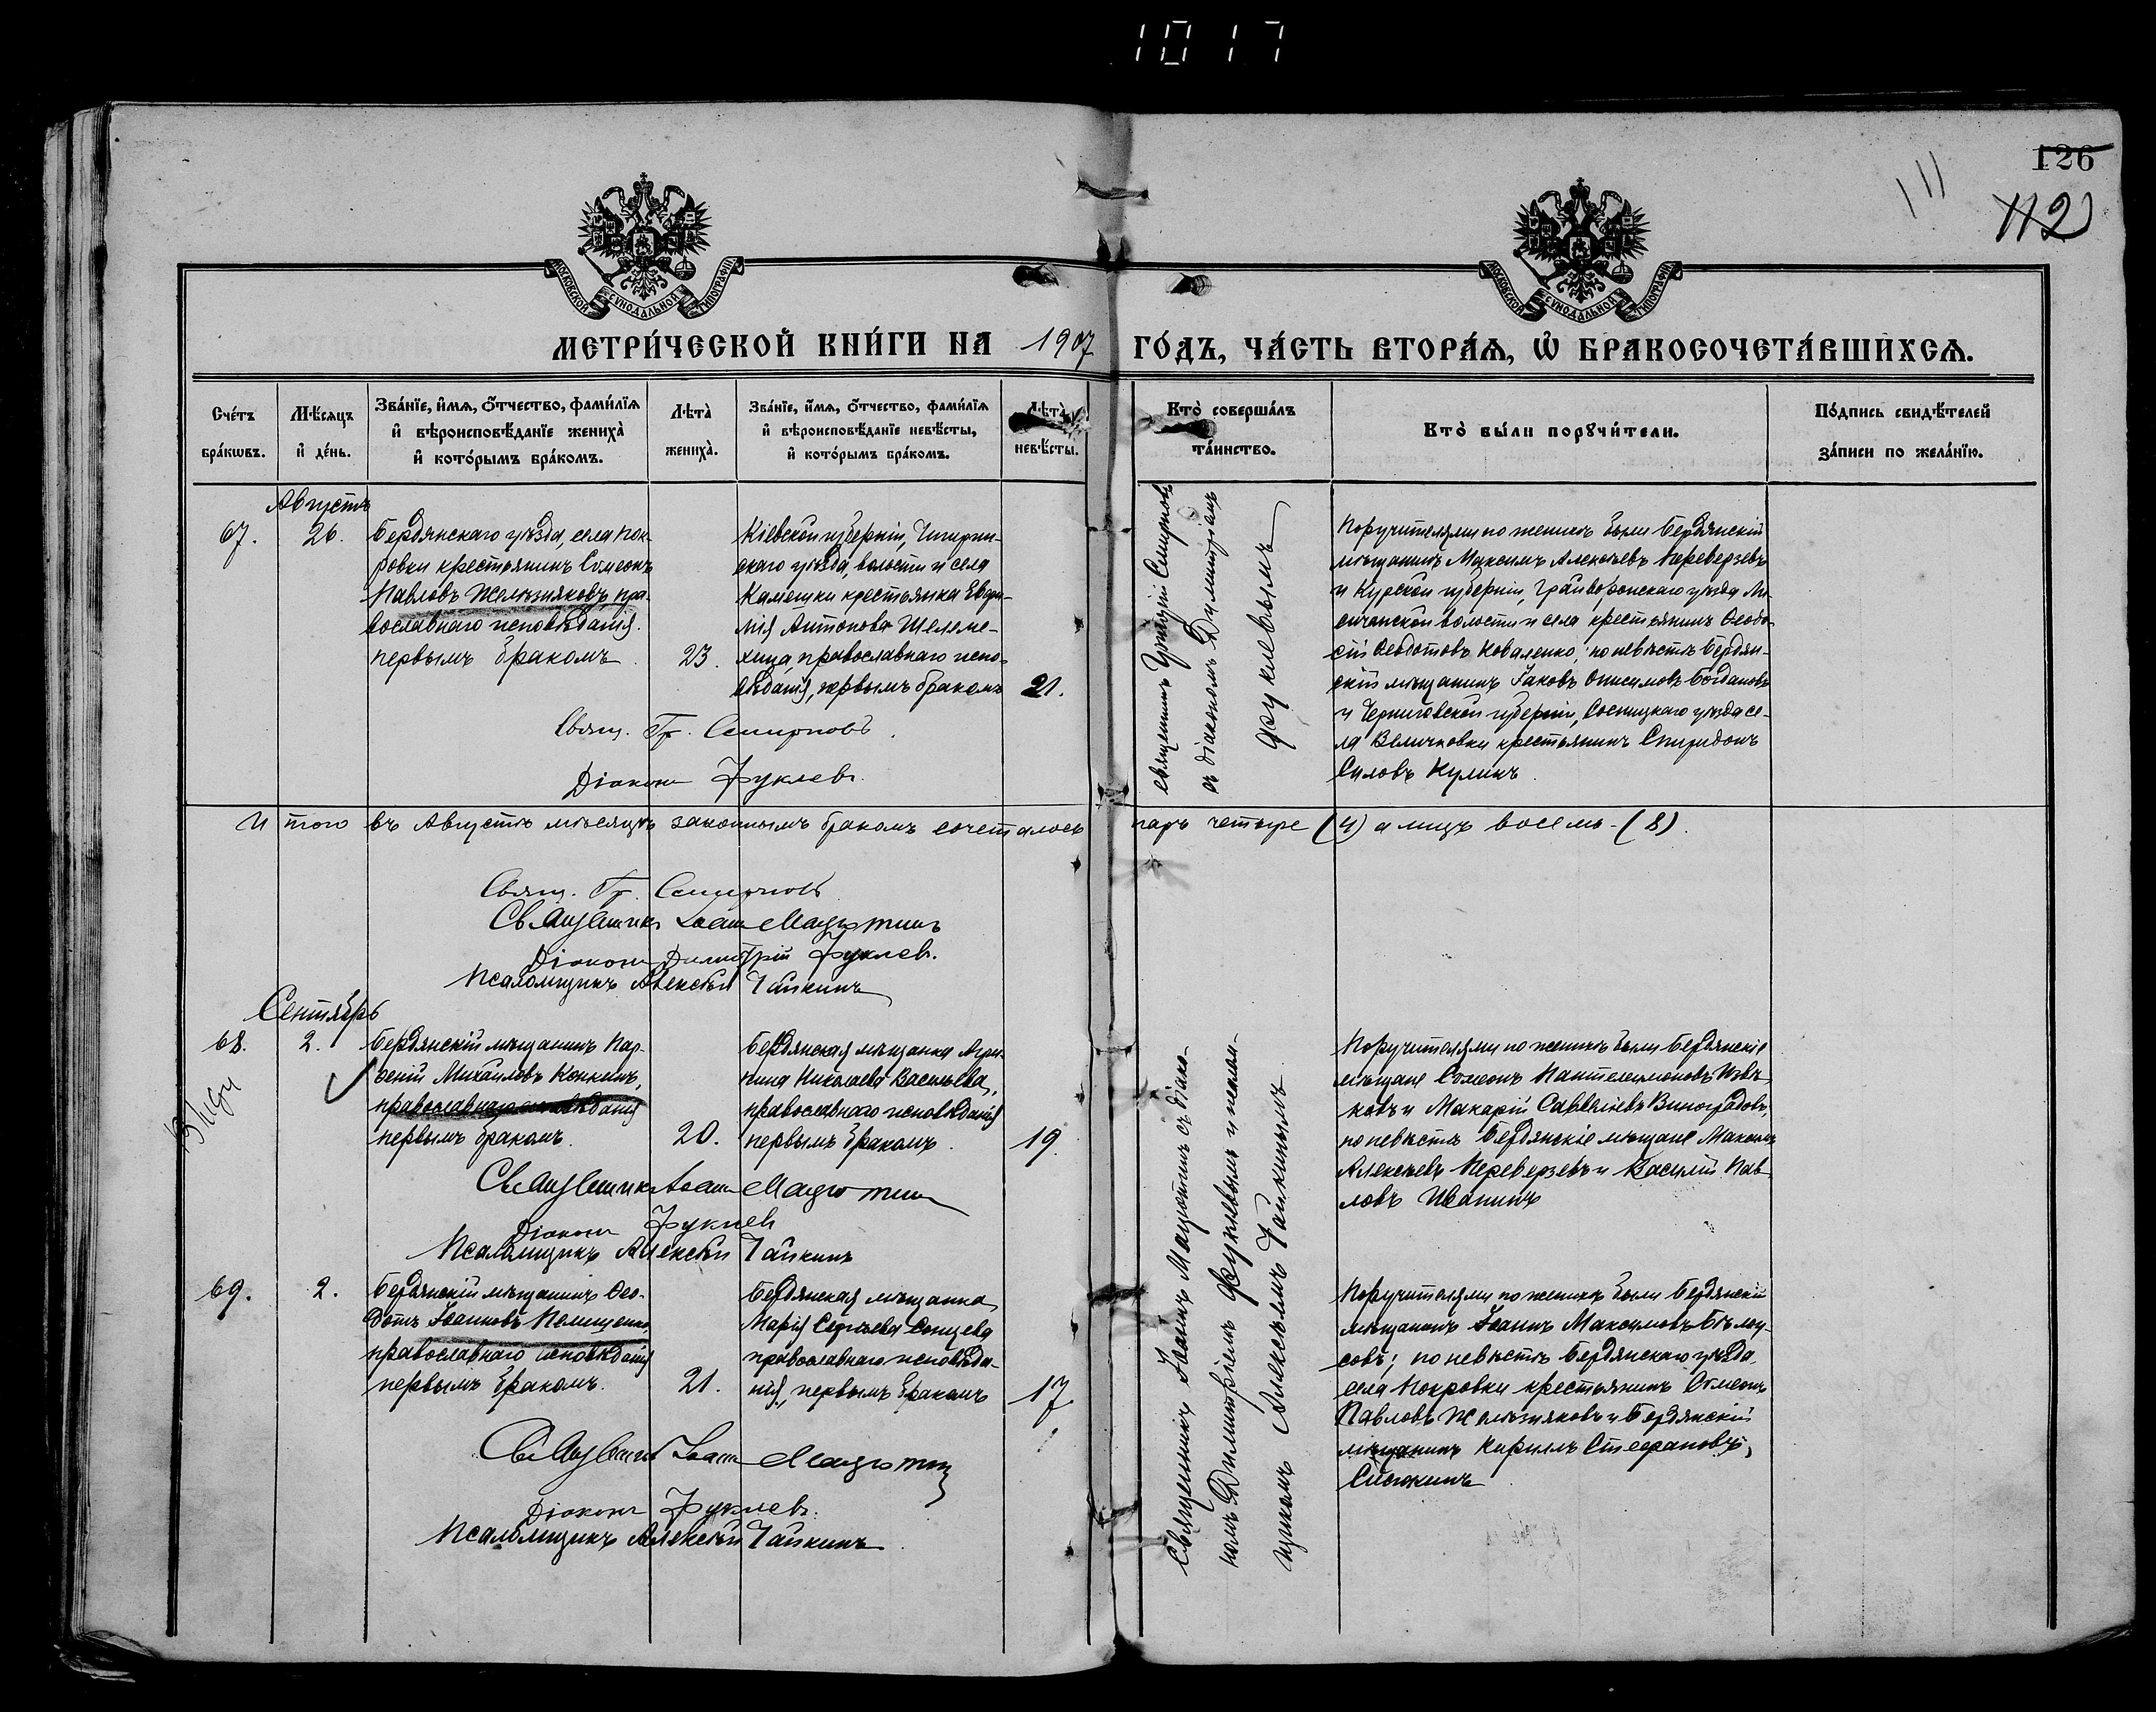 1017
126
111
112
МОСКОВСКОЙ СѴНОДАЛЬНОЙ ТИПОГРАФІИ
МОСКОВСКОЙ СѴНОДАЛЬНОЙ ТИПОГРАФІИ
МЕТРИ́ЧЕСКОЙ КНИ́ГИ НА 1907 ГО́ДЪ, ЧА́СТЬ ВТОРА́Ѧ, Ѡ҆ БРАКОСОЧЕТА́ВШИХСѦ.
Сче́тъ бра́кѡвъ.
Мѣ́сѧцъ и҆ де́нь.
Зва́нїе, и҆́мѧ, ѻ҆́тчество, фами́лїѧ
и҆ вѣроисповѣ́данїе жениха̀
и҆ кото́рымъ бра́комъ.
Лѣта̀ жениха̀.
Зва́нїе, и҆́мѧ, ѻ҆́тчество, фами́лїѧ
и҆ вѣроисповѣ́данїе невѣ́сты,
и҆ кото́рымъ бра́комъ.
Лѣта̀ невѣ́сты.
Кто̀ соверша́лъ
та́инство.
Кто̀ бы́ли порꙋчи́тели.
По́дпись свидѣ́телей
за́писи по жела́нїю.
Августъ
67.
26.
Бердянскаго уѣзда, села Пок-
ровки крестьянинъ Сѵмеонъ
Павловъ Желѣзняковъ, пра-
вославнаго исповѣданія.
первымъ бракомъ
23.
Кіевской губерніи, Чигирин-
скаго уѣзда, волости и села
Каменки крестьянка Евфи-
мія Антонова Шелеме-
хина, православнаго испо-
вѣданія, первымъ бракомъ
21.
Священникъ Григорій Смирновъ
съ діакономъ Димитріемъ
Фуклевымъ
Поручителями по женихѣ были Бердянскій
мѣщанинъ Максимъ Алексѣевъ Переверзевъ
и Курской губерніи, Грайворонскаго уѣзда
волости и села крестьянинъ Ѳеодо-
сій Ѳеодотовъ Коваленко, по невѣстѣ Бердян-
скій мѣщанинъ Іаковъ Онисимовъ Богдановъ
и Черниговской губерніи, Сосницкаго уѣзда се-
ла Величковки крестьянинъ Спиридонъ
Силовъ Кулишъ.
Свящ. Гр. Смирновъ.
Діаконъ Фуклевъ.
Итого въ Августѣ мѣсяцѣ законнымъ бракомъ сочеталось паръ четыре (4) а лицъ восемь - (8).
Свящ. Гр. Смирновъ
Священникъ Іоаннъ Мацютинъ
Діаконъ Димитрій Фуклевъ.
Псаломщикъ Алексѣй Чайкинъ
Сентябрь
68.
2.
Бердянскій мѣщанинъ Пар-
ѳеній Михайловъ Конкинъ,
православнаго исповѣданія
первымъ бракомъ.
20.
Бердянская мѣщанка Агрип-
пина Николаева Васильева,
православнаго исповѣданія
первымъ бракомъ.
19.
Священникъ Іоаннъ Мацютинъ съ діако-
номъ Димитріемъ Фуклевымъ и псалом-
щикомъ Алексѣемъ Чайкинымъ.
Поручителями по женихѣ были Бердянскіе
мѣщане Сѵмеонъ Пантелеимоновъ
и Макарій Савватіевъ Виноградовъ,
по невѣстѣ Бердянскіе мѣщане Максимъ
Алексѣевъ Переверзевъ и Василій Пав-
ловъ Иванинъ
Священникъ Іоаннъ Мацютинъ
Діаконъ Фуклевъ
Псаломщикъ Алексѣй Чайкинъ
69.
2.
Бердянскій мѣщанинъ Ѳео-
дотъ Іоанновъ Полищенко,
православнаго исповѣданія
первымъ бракомъ.
21.
Бердянская мѣщанка
Марія Сергѣева Солцева
православнаго исповѣда-
нія, первымъ бракомъ
17.
Поручителями по женихѣ были Бердянскій
мѣщанинъ Іоаннъ Максимовъ Бѣлоу-
совъ; по невѣстѣ Бердянскаго уѣзда,
села Покровки крестьянинъ Сѵмеонъ
Павловъ Желѣзняковъ и Бердянскій
мѣщанинъ Кириллъ Стефановъ
Священникъ Іоаннъ Мацютинъ
Діаконъ Фуклевъ.
Псаломщикъ Алексѣй Чайкинъ